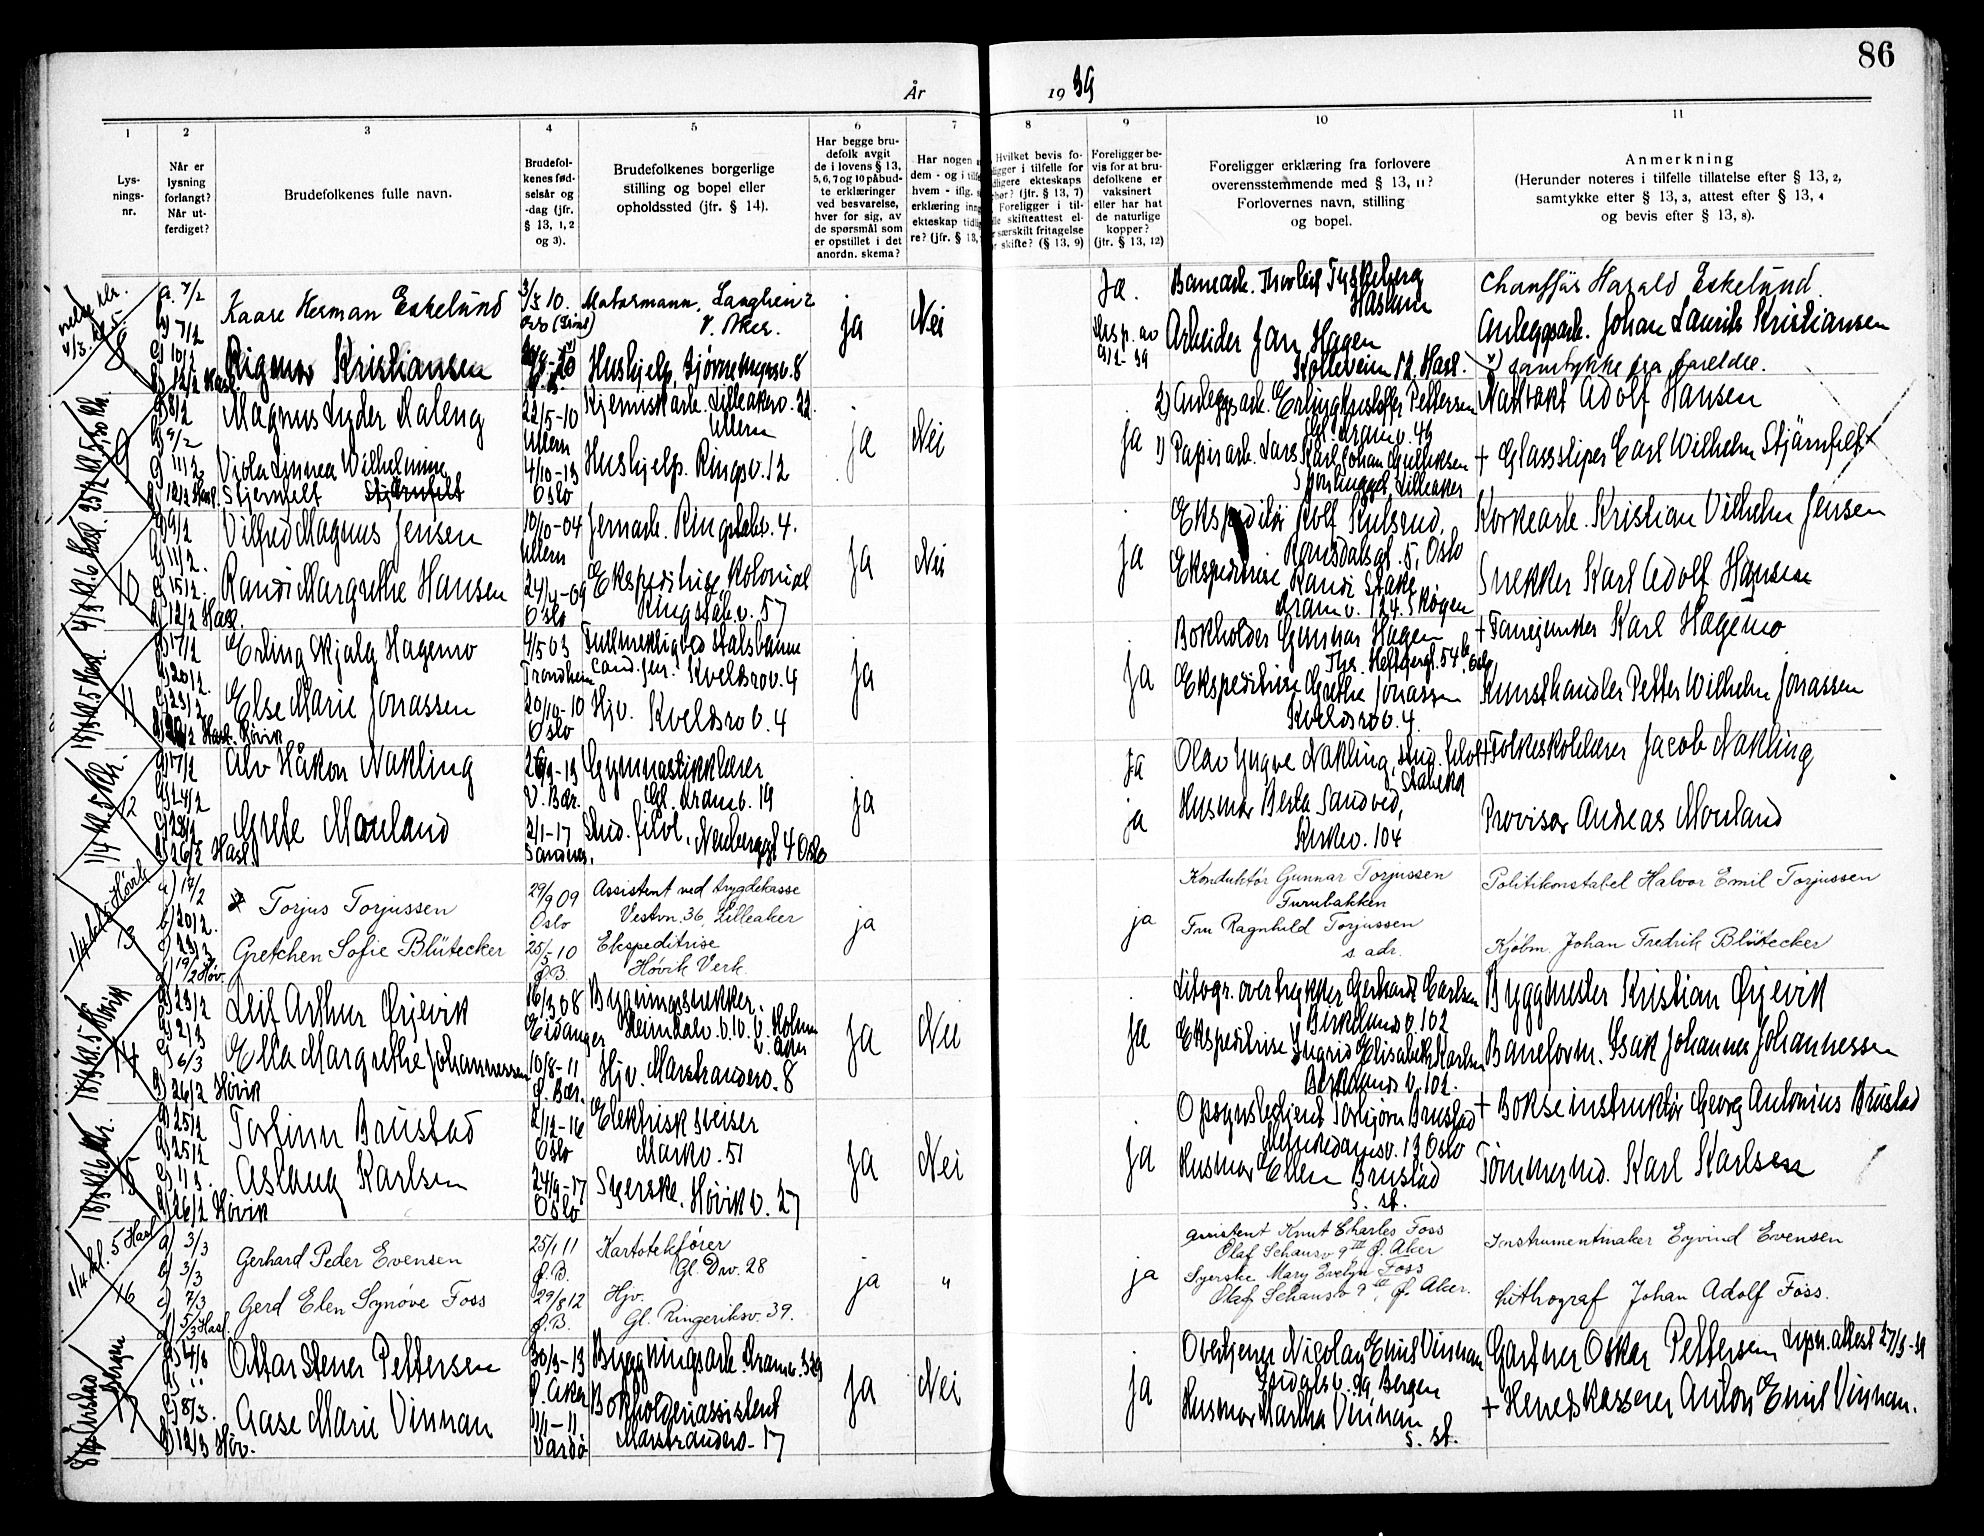 86
År 19 39
1 2 3 4 5 6 7 8 9 10 11
Lys-
nings-
nr.
Når er
lysning
forlangt?
Når ut-
ferdiget?
Brudefolkenes fulle navn.
Brudefol-
kenes fød-
selsår og
-dag (jfr.
§ 13, 1, 2
og 3).
Brudefolkenes borgerlige
stilling og bopel eller
opholdssted (jfr. § 14).
Har begge bru-
defolk avgit
de i lovens § 13,
5, 6, 7 og 10 påbud-
te erklæringer
ved besvarelse,
hver for sig, av
de spørsmål som
er opstillet i det
anordn. skema?
Har nogen
dem - og i
hvem - iflg.
erklæring
ekteskap
re? (jfr. § 13,
Hvilket bevis fo-
i tilfelle for
ekteskaps
(jfr. § 13, 7)
Foreligger i til-
skifteattest el-
særskilt fritagelse
skifte? (§ 13, 9)
Foreligger be-
vis for at bru-
defolkene er
vaksinert
eller har hat
de naturlige
kopper?
(jfr. § 13, 12)
Foreligger erklæring fra forlovere
overensstemmende med § 13, 11?
Forlovernes navn, stilling
og bopel.
Anmerkning
(Herunder noteres i tilfelle tillatelse efter § 13, 2,
samtykke efter § 13, 3, attest efter § 13, 4
og bevis efter § 13, 8).
a. 7/2
b) 7/2
c) 10/2
d) 12/2 Hasl.
Kaare Herman Eskelund
3/3 10.
Motormann, Langlien 2
V. Aker.
ja
Nei
Ja.
Banearb. Thorleif
Haslum
Chauffør Harald Eskelund.
Rigmor Kristiansen
Hushjelp,
Arbeider Jan Hagen
Kolleveien 12, Hasl.
Anleggsarb. Johan Laurits Kristiansen
samtykke fra foreldre.
9
a) 8/2
b) 9/2
c) 11/2
d) 12/2 Hasl.
Magnus Lyder Maleng
22/5-10
Ullern
Kjemiskarb. Lilleakerv. 22.
Ullern
ja
Nei
ja
2) Anleggsarb. Erling Kristoffer Pettersen
Gl. Dramv. 46
Nattvakt Adolf Hansen
Viola Linnea Wilhelmine
Stjernfelt
4/10-13
Oslo
Hushjelp. Ringsv. 12
1) Papirarb. Lars Karl Johan Gulliksen
Lilleaker
+ Glassliper Carl Wilhelm Stjärnfelt
10
a) 9/2
b) 11/2.
c) 15/2.
d) 12/2 Hasl.
Vilfred Magnus Jensen
10/10-04
Ullern
Jernarb. Ringstabv. 4.
Ja
Nei
Ja
Ekspeditør Rolf Rulsrud,
Romsdalsgt. 5, Oslo
Korkearb. Kristian Vilhelm Jensen
Randi Margrethe Hansen
24/4-09
Oslo
Ekspeditrise kolonial
Ringstabv. 57
Ekspeditrise Randi Stake
Dramv. 124. Skøyen
Snekker Karl Adolf Hansen
11
a) 17/2
b) 20/2
c) 23/2
Hasl. Høvik
Erling Skjalg Hagemo
4/5 03
Trondheim
Fullmektig ved statsbanene
cand. jur. Kveldsrov. 4
ja
ja
Bokholder Gunnar Hagen
Ths. Heftyesgt. 54b, Oslo
+ Fanejunker Karl Hagemo
Else Marie Jonassen
20/10-10
Oslo
Hjv. Kveldsrov. 4
Ekspeditrise Grethe Jonassen
Kveldsrov. 4
Kunsthandler Petter Wilhelm Jonassen
12
a) 17/2
b) 24/2
d) 26/2 Hasl.
Alv Håkon Nakling
26/9-13
V. Bær.
Gymnastikklærer
Gl. Dramv. 19
ja
Ja
Olav Yngve Nakling, stud. filol.
Stabekk
+ Folkeskolelærer Jacob Nakling
Grete Monland
2/1-17
Sandnes,
Stud. filol, Neuberggt 4 Oslo
ja
Husmor Berta Sandved,
Kirkev. 104
Provisor Andreas Monland
1/4 kl. 5 Høvik
13
a) 17/2
b) 20/2.
c) 23/3
d) 19/2 Høv.
Torjus Torjussen
29/9 09
Oslo
Assistent ved trygdekasse
Vestvn. 36, Lilleaker
ja
ja
Konduktør Gunnar Torjussen
Furubakken
Politikonstabel Halvor Emil Torjussen
Gretchen Sofie Blütecker
25/5 10
Ø.B.
Ekspeditrise
Høvik Verk.
Fru Ragnhild Torjussen
s. adr.
Kjøbm. Johan Fredrik Blütecker
18/3 kl. 5 Høvik
14
a) 23/2
b) 2/3
c) 6/3
d) 26/2 Høvik
Leif Arthur Ørjevik
16/3 08
Eidanger
Bygningssnekker.
Heimdalv. 10. v. Holmen
V. Aker
Ja
Nei
Ja
Litogr. overtrykker Gerhard Carlsen
Birkelundv. 102
Byggmester Kristian Ørjevik
Ella Margrethe Johannessen
10/8-11
Ø. Bær.
Hjv. Marstranderv. 8
Ekspeditrise Ingrid Elisabeth Karlsen
Birkelunds v. 102.
Baneform. Isak Johannes Johannessen
18/3 kl. 6
15
a) 25/2
b) 25/2
c) 1/3.
d) 26/2 Høvik
Torfinn Brustad
2/12-16
Oslo
Elektrisk sveiser
Markv. 51
Ja
Nei
ja
Opsynsbetjent Torbjørn Brustad
Munkedamsv. 13 Oslo
+ Bokseinstruktør Georg Antonius Brustad
Aslaug Karlsen
24/9-17
Oslo
Syerske. Høvik v. 27
Husmor Ellen Brustad
s. st.
Tømmermd. Karl Karlsen
1/4 kl. 5 Hasl.
16
a) 3/3
b) 3/3
c) 7/3
d) 5/3 Hasl.
Gerhard Peder Evensen
25/1 11
Ø.B.
Kartotekfører
Gl. Drv. 28
ja
"
ja
Assistent Knut Charles Foss
Olaf Schousv 9 III Ø. Aker
Instrumentmaker Eyvind Evensen
Gerd Elen Synøve Foss
29/8 12
Ø.B.
Hjv.
Gl. Ringeriksv. 39.
Syerske Mary Evelyn Foss
Olaf Schousv 9 III, Ø. Aker.
Lithograf Johan Adolf Foss.
Bergen
c) 8/3.
d) 12/3 Høv.
Ottar Stener Pettersen
30/3-13
Ø. Aker
Bygningsarb. Dramv. 339
Ja
Nei
Ja
Overtjener Nicolay Emil Vinnan
Bergen
Gartner Oskar Pettersen Lysn. attest 27/3-39
Aase Marie Vinnan
11/1-11
Vardø
Bokholderiassistent
Marstranderv. 17
Husmor Martha Vinnan
s. st.
+ Herredskasserer Anton Emil Vinnan.